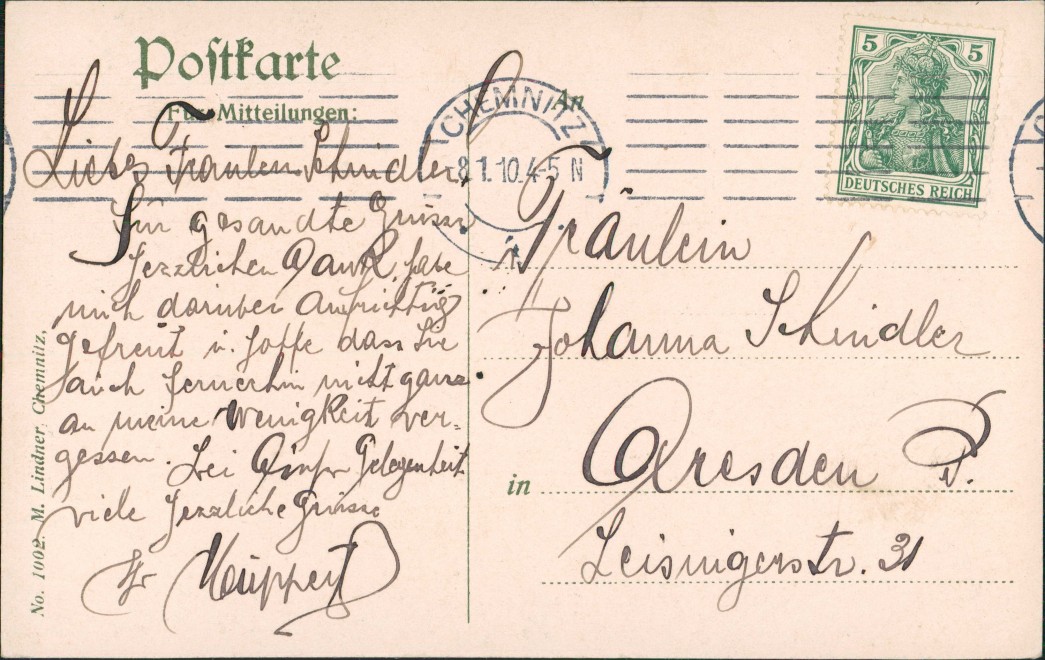 Postkarte
Für Mitteilungen:
An
CHEMNITZ
8.1.10.4-5 N
5 5
DEUTSCHES REICH
Liebes Fräulein Schindler,
Für gesandte Grüsse
herzlichen Dank, habe
mich darüber aufrichtig
gefreut u. hoffe dass Sie
auch fernerhin nicht ganz
an meine Wenigkeit ver-
gessen. Bei dieser Gelegenheit
viele herzliche Grüsse
Fräulein
Johanna Schindler
in Dresden P.
Leisnigerstr. 31
No. 1002. M. Lindner, Chemnitz.